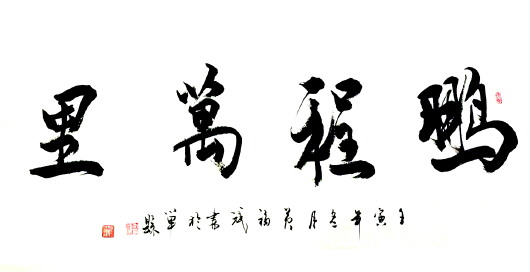 鵬程萬里
壬寅年冬月黄福斌書於單縣